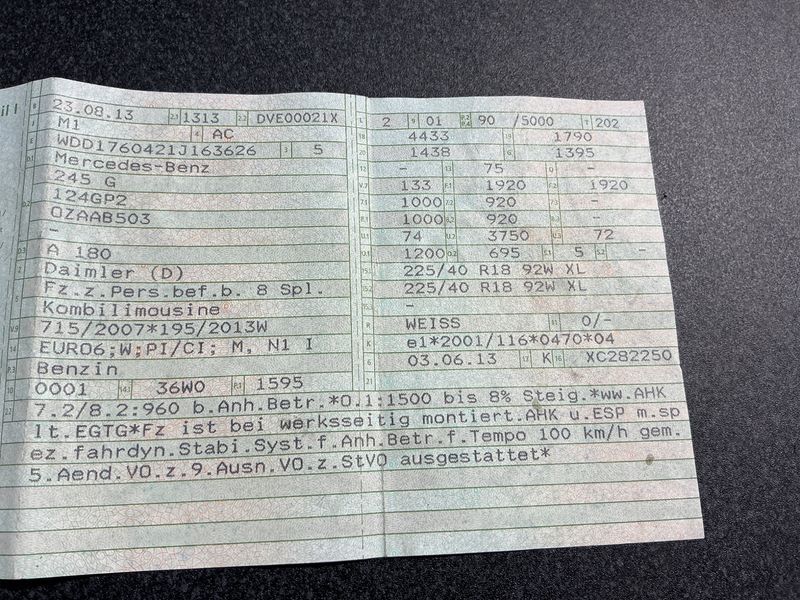 il I
23.08.13 1313 DVE00021X
M1 AC
WDD1760421J163626 5
Mercedes-Benz
245 G
124GP2
OZAAB503
-
A 180
Daimler (D)
Fz.z.Pers.bef.b. 8 Spl.
Kombilimousine
715/2007*195/2013W
EURO6;W;PI/CI; M, N1 I
Benzin
0001 36W0 1595
2 01 90 /5000 202
4433 1790
1438 1395
- 75 -
133 1920 1920
1000 920 -
1000 920 -
74 3750 72
1200 695 5 -
225/40 R18 92W XL
225/40 R18 92W XL
-
WEISS 0/-
e1*2001/116*0470*04
03.06.13 K XC282250
7.2/8.2:960 b.Anh.Betr.*O.1:1500 bis 8% Steig.*ww.AHK
lt.EGTG*Fz ist bei werksseitig montiert.AHK u.ESP m.sp
ez.fahrdyn.Stabi.Syst.f.Anh.Betr.f.Tempo 100 km/h gem.
5.Aend.VO.z.9.Ausn.VO.z.StVO ausgestattet*